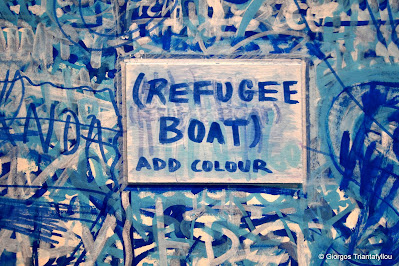 (REFUGEE
BOAT)
ADD COLOUR
© Giorgos Triantafyllou